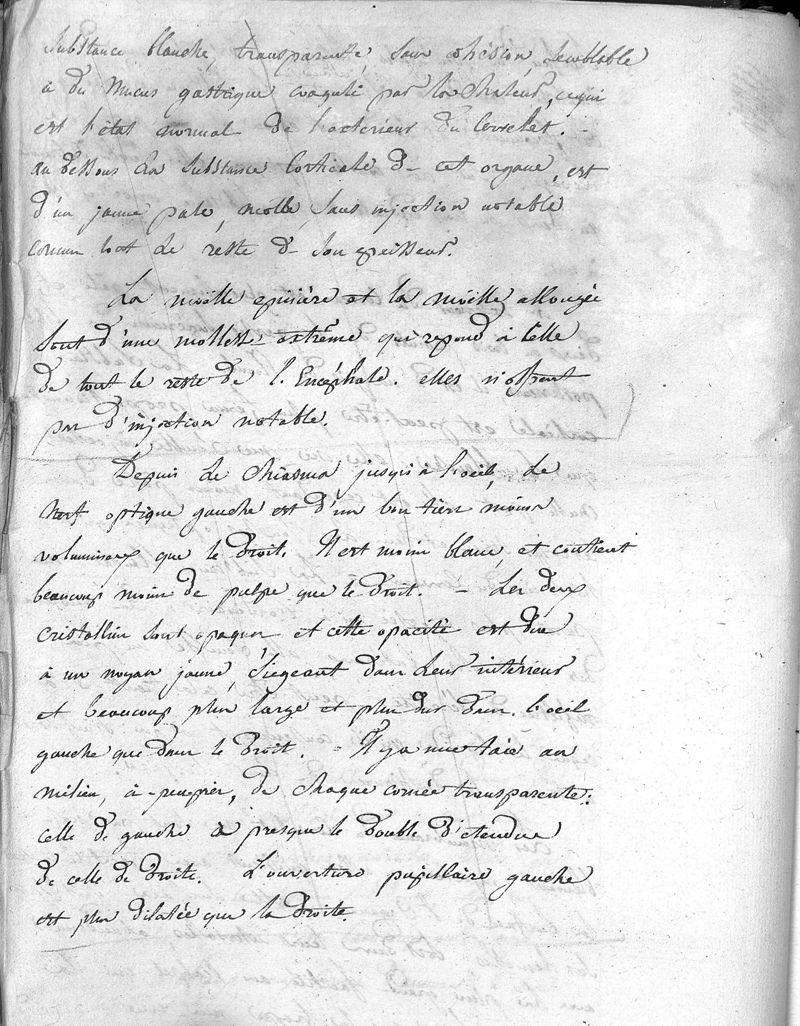 substance blanche, transparente, sans cohésion, semblable
à du mucus gastrique coagulé par la chaleur, ce qui
est l'état normal de l'extérieur du cervelet. -
au dessous la substance corticale de cet organe, est
d'un jaune pale, molle, sans injection notable
comme tout le reste de son epaisseur.
La moëlle epinière et la moëlle allongée
sont d'une mollesse extrême qui repond à celle
de tout le reste de l'Encéphale. elles n'offrent
pas d'injection notable.
Depuis le chiasma jusqu'à l'oeil, le
nerf optique gauche est d'un bon tiers moins
volumineux que le droit. Il est moins blanc, et contient
beaucoup moins de pulpe que le droit. - Les deux
cristallins sont opaques et cette opacité est due
à un noyau jaune, siegeant dans leur intérieur
et beaucoup plus large et plus dur dans l'oeil
gauche que dans le droit. - Il y a une taie au
milieu, à-peu-près, de chaque cornée transparente:
celle de gauche a presque le double d'etendue
de celle de droite. L'ouverture pupillaire gauche
est plus dilatée que la droite.